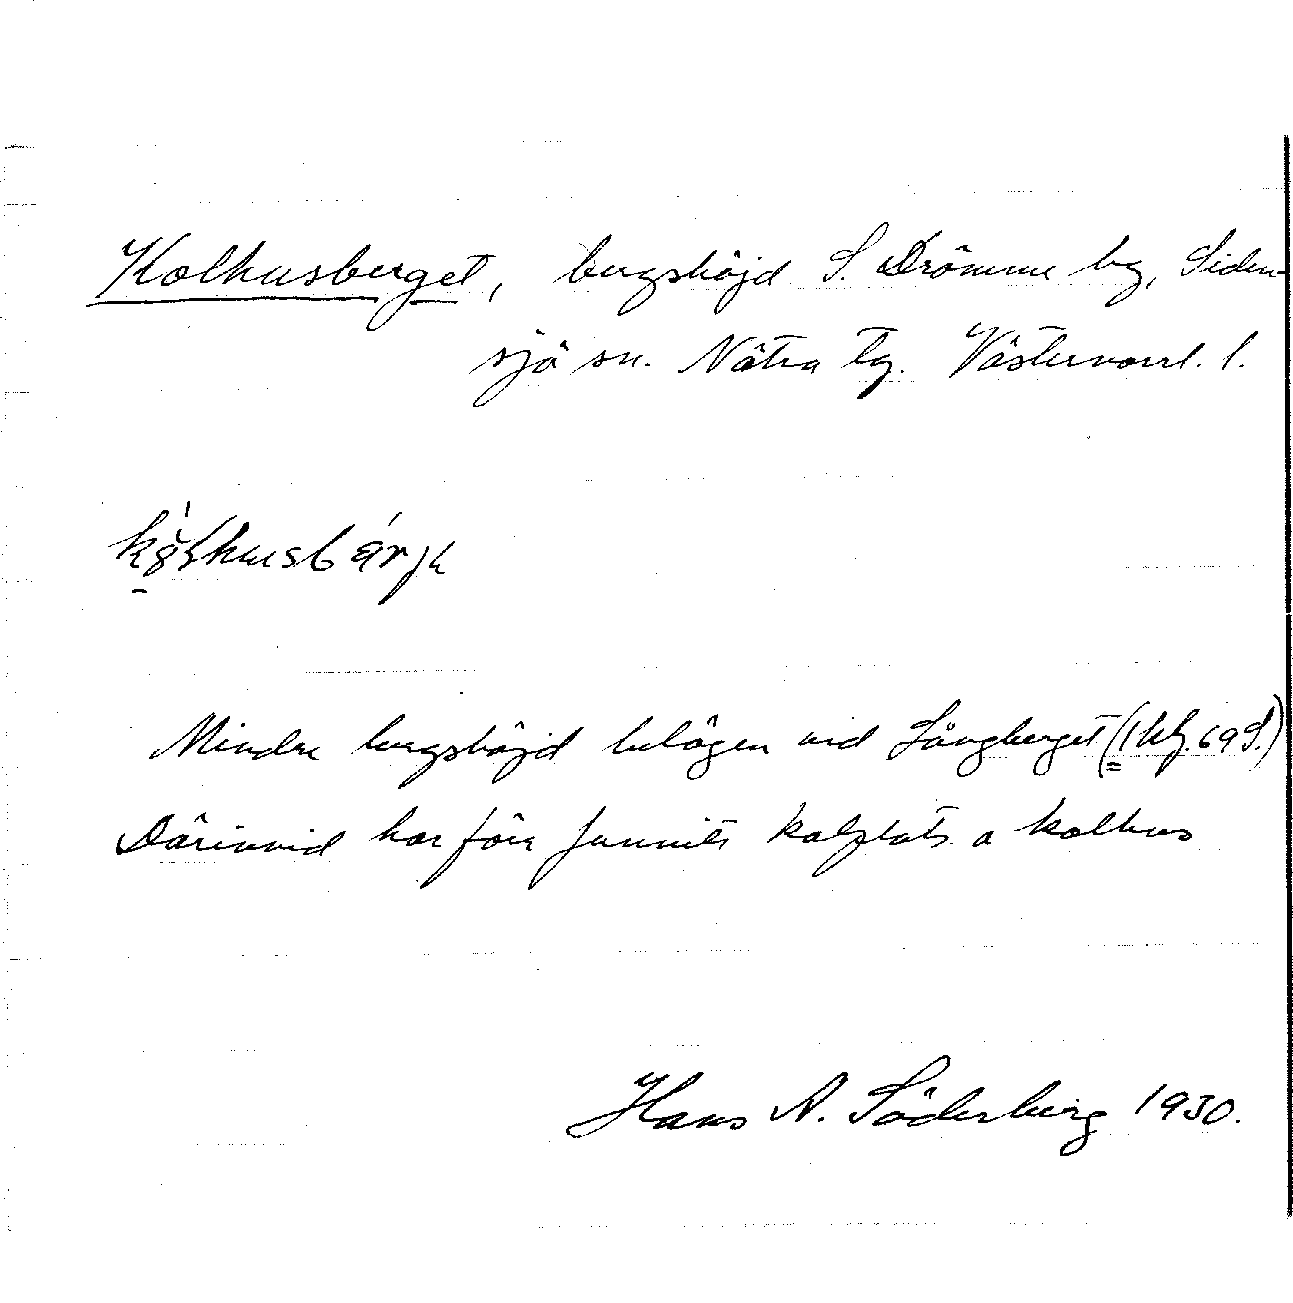 Kolhusberget, bergshöjd S. Drömme by, Siden-
sjö sn. Nätra tg. Västernorrl. l.
Mindre bergshöjd belägen vid Långberget (1 bl. 69 S.)
Därinvid har förr funnits kolplats o kolhus
Hans A. Söderberg 1930.